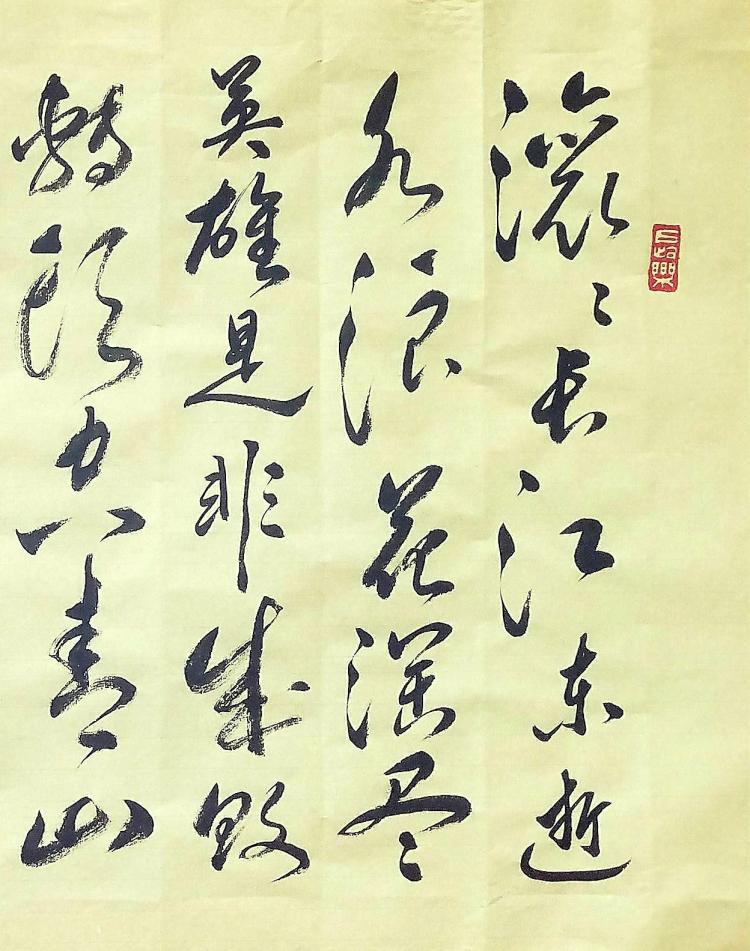 滚滚长江东逝
水浪花淘尽
英雄是非成败
转头空青山